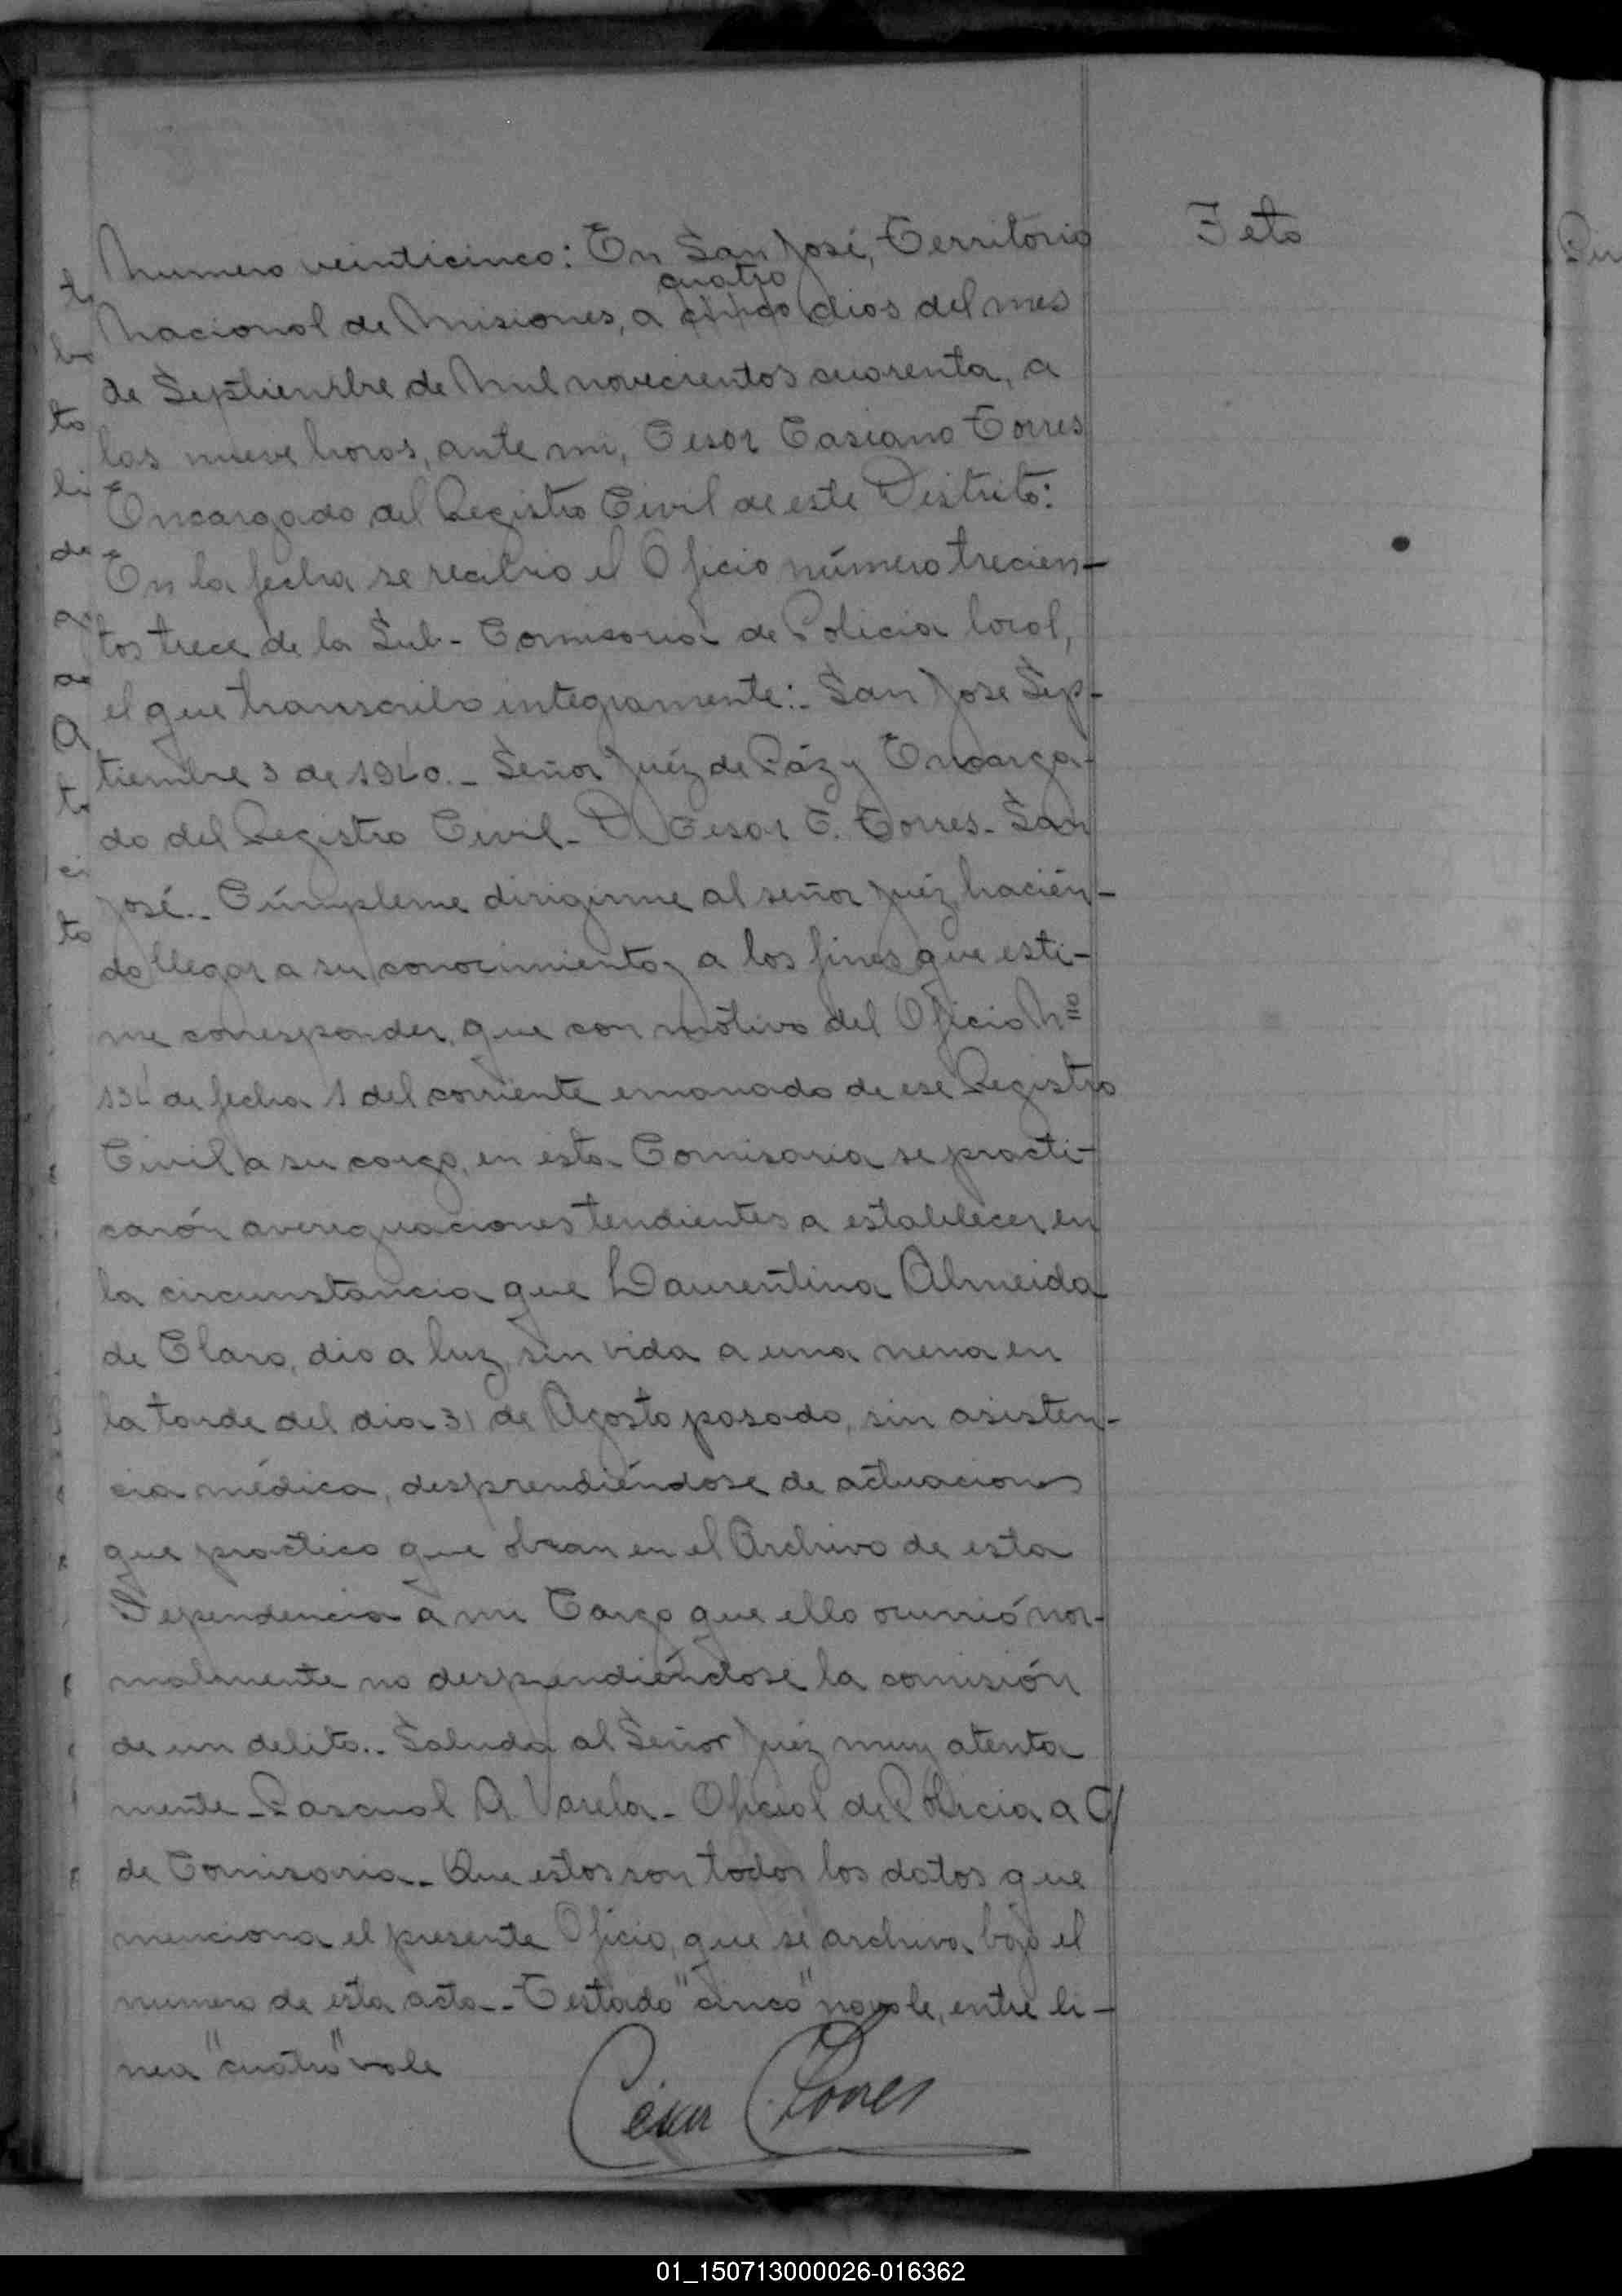 Feto
Numero veinticinco: En San José, Territorio
cuatro
Nacional de Misiones, a cinco dias del mes
de Septiembre de Mil novecientos cuarenta, a
las nueve horas, ante mi, Cesar Casiano Torres
Encargado del Registro Civil de este Distrito:
En la fecha se recibio el Oficio número trecien-
tos trece de la Sub-Comisaria de Policia local,
el que transcribo integramente:- San Jose Sep-
tiembre 3 de 1940.- Señor Juéz de Páz y Encarga-
do del Registro Civil- D Cesar C. Torres- San
José.- Cúmpleme dirigirme al señor Juéz, hacién-
do llegar a su conocimiento, a los fines que esti-
me corresponder, que con motivo del Oficio Nº
134 de fecha 1 del corriente emanado de ese Registro
Civil a su cargo, en esta Comisaria se practi-
carón averiguaciones tendientes a establecer en
la circunstancia que Laurentina Almeida
de Claro, dio a luz, sin vida a una nena en
la tarde del dia 31 de Agosto pasado, sin asisten-
cia médica, desprendiéndose de actuaciones
que practico que obran en el Archivo de esta
Dependencia a mi Cargo que ello ocurrió nor-
malmente no desprendiéndose la comisión
de un delito.- Saluda al Señor Juéz muy atenta
mente- Pascual A. Varela- Oficial de Policia a C/
de Comisaria- Que estos son todos los datos que
menciona el presente Oficio, que se archiva bajo el
numero de esta acta.- Testado "cinco" no vale, entre li-
nea "cuatro" vale
Cesar C Torres
01_150713000026-016362